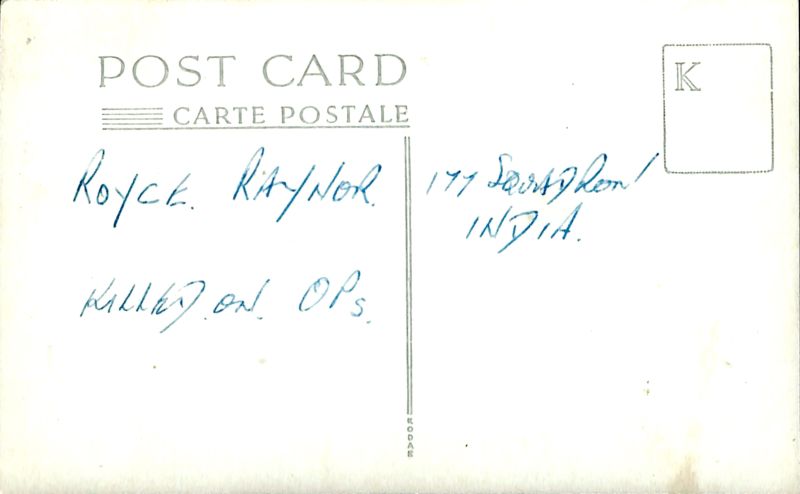 POST CARD
CARTE POSTALE
K
ROYCE. RAYNOR.
KILLED. ON. OPs.
177 SQUADRON
INDIA.
KODAK